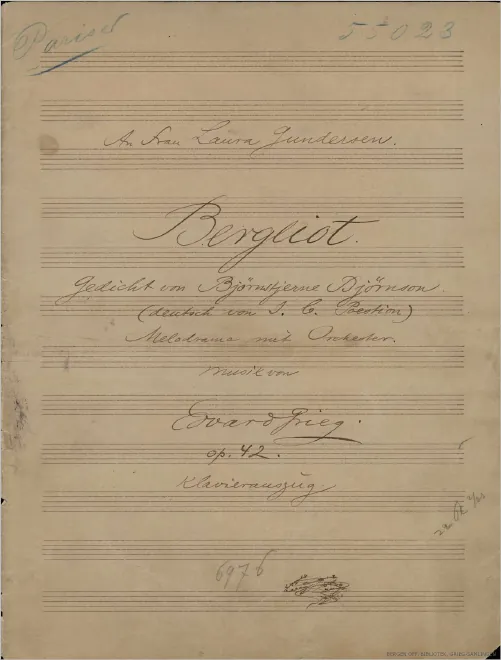 Pariser
55023
An Frau Laura Gundersen.
Bergliot.
Gedicht von Björnstjerne Björnson.
(deutsch von J. C. Poestion)
Melodrama mit Orchester.
Musik von
Edvard Grieg.
op. 42.
Klavierauszug
6976
BERGEN OFF. BIBLIOTEK, GRIEG-SAMLINGEN